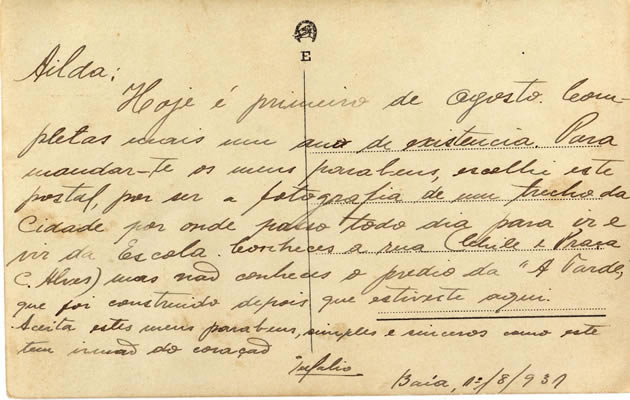 E
Ailda:
Hoje é primeiro de Agosto. Com-
pletas mais um ano de existencia. Para
mandar-te os meus parabens, escolhi este
postal, por ser a fotografia de um trecho da
Cidade por onde passo todo dia para ir e
vir da Escola. Conheces a rua (Chile e Praça
C. Alves) mas não conheces o predio da "A Tarde",
que foi construido depois que estiveste aqui.
Aceita estes meus parabens, simples e sinceros como este
teu irmão do coração
Baía, 1º/8/931